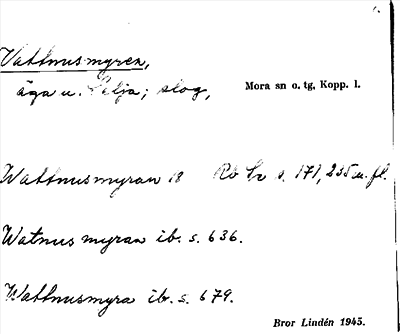 Vattnusmyren,
äga u. Selja; slog, Mora sn o. tg, Kopp. l.
Wattnusmyran 18 Rb Sv s. 171, 235 m. fl.
Watnus myran ib. s. 636.
Wattnusmyra ib. s. 679.
Bror Lindén 1945.